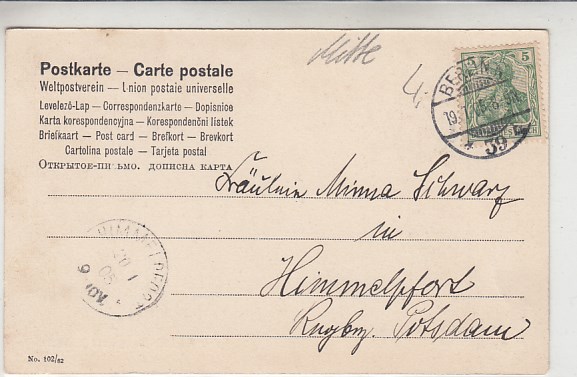 Mitte
4.
5
BERLIN
19.
* 39
Postkarte — Carte postale
Weltpostverein — Union postale universelle
Levelező-Lap — Correspondenzkarte — Dopisnice
Karta korespondencyjna — Korespondenční listek
Briefkaart — Post card — Brefkort — Brevkort
Cartolina postale — Tarjeta postal
Открытое письмо. дописна карта
Fräulein Minna Schwarz
in
Himmelpfort
Rugbz. Potsdam
HIMMELPFORT
20 1
05
9-10V
No. 102/62